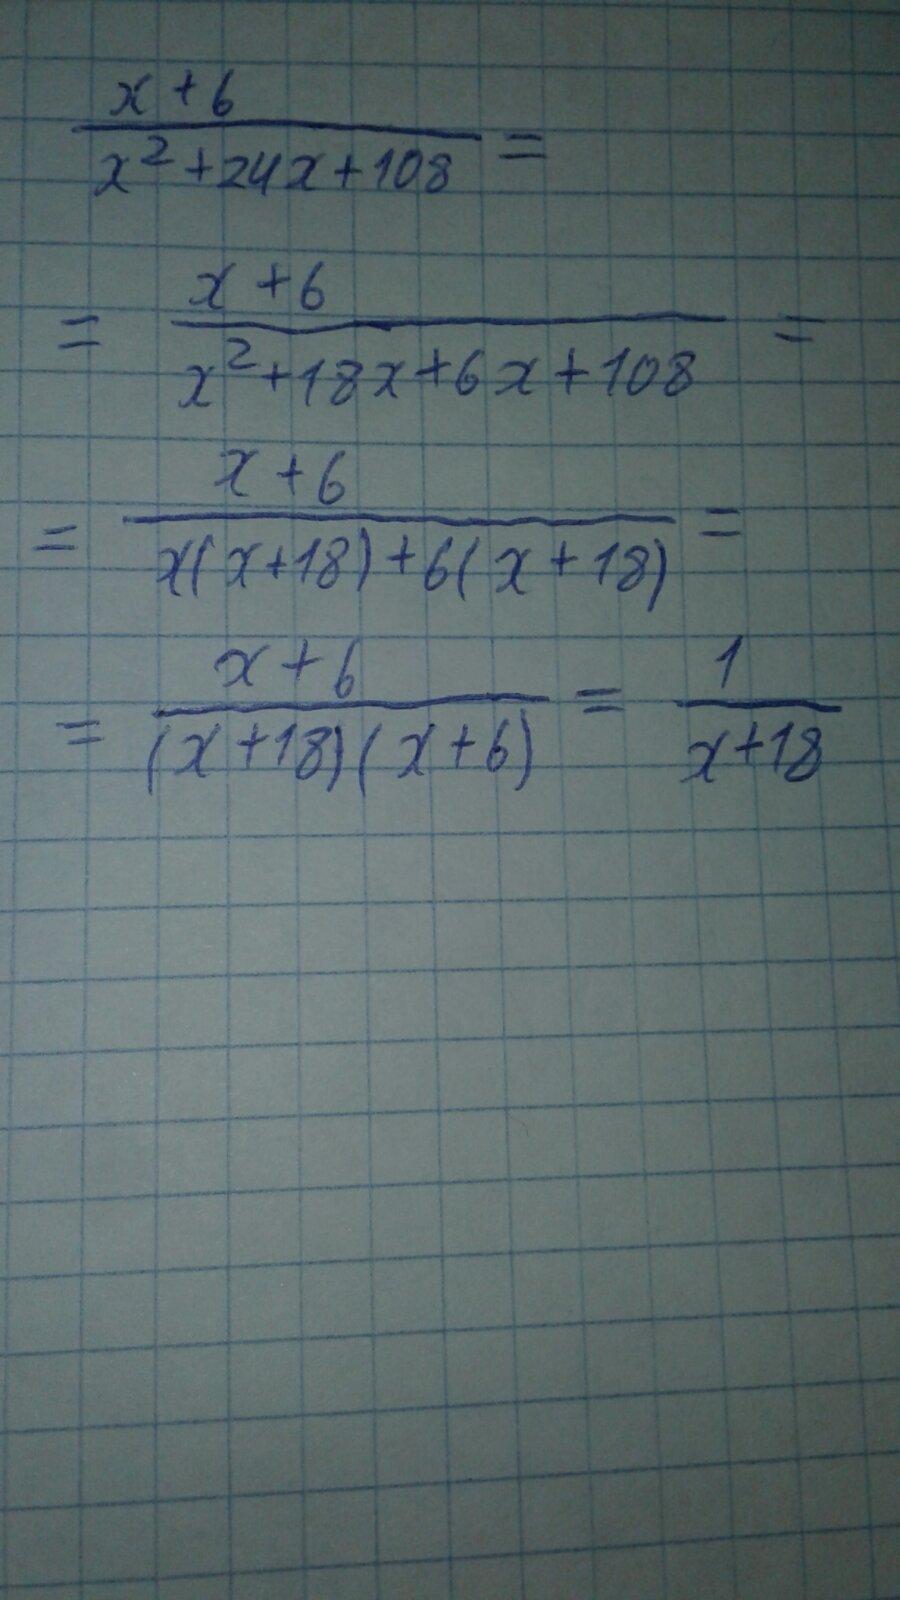 x + 6
x² + 24x + 108 =
= x + 6
x² + 18x + 6x + 108 =
= x + 6
x(x + 18) + 6(x + 18) =
= x + 6 = 1
(x + 18)(x + 6) x + 18